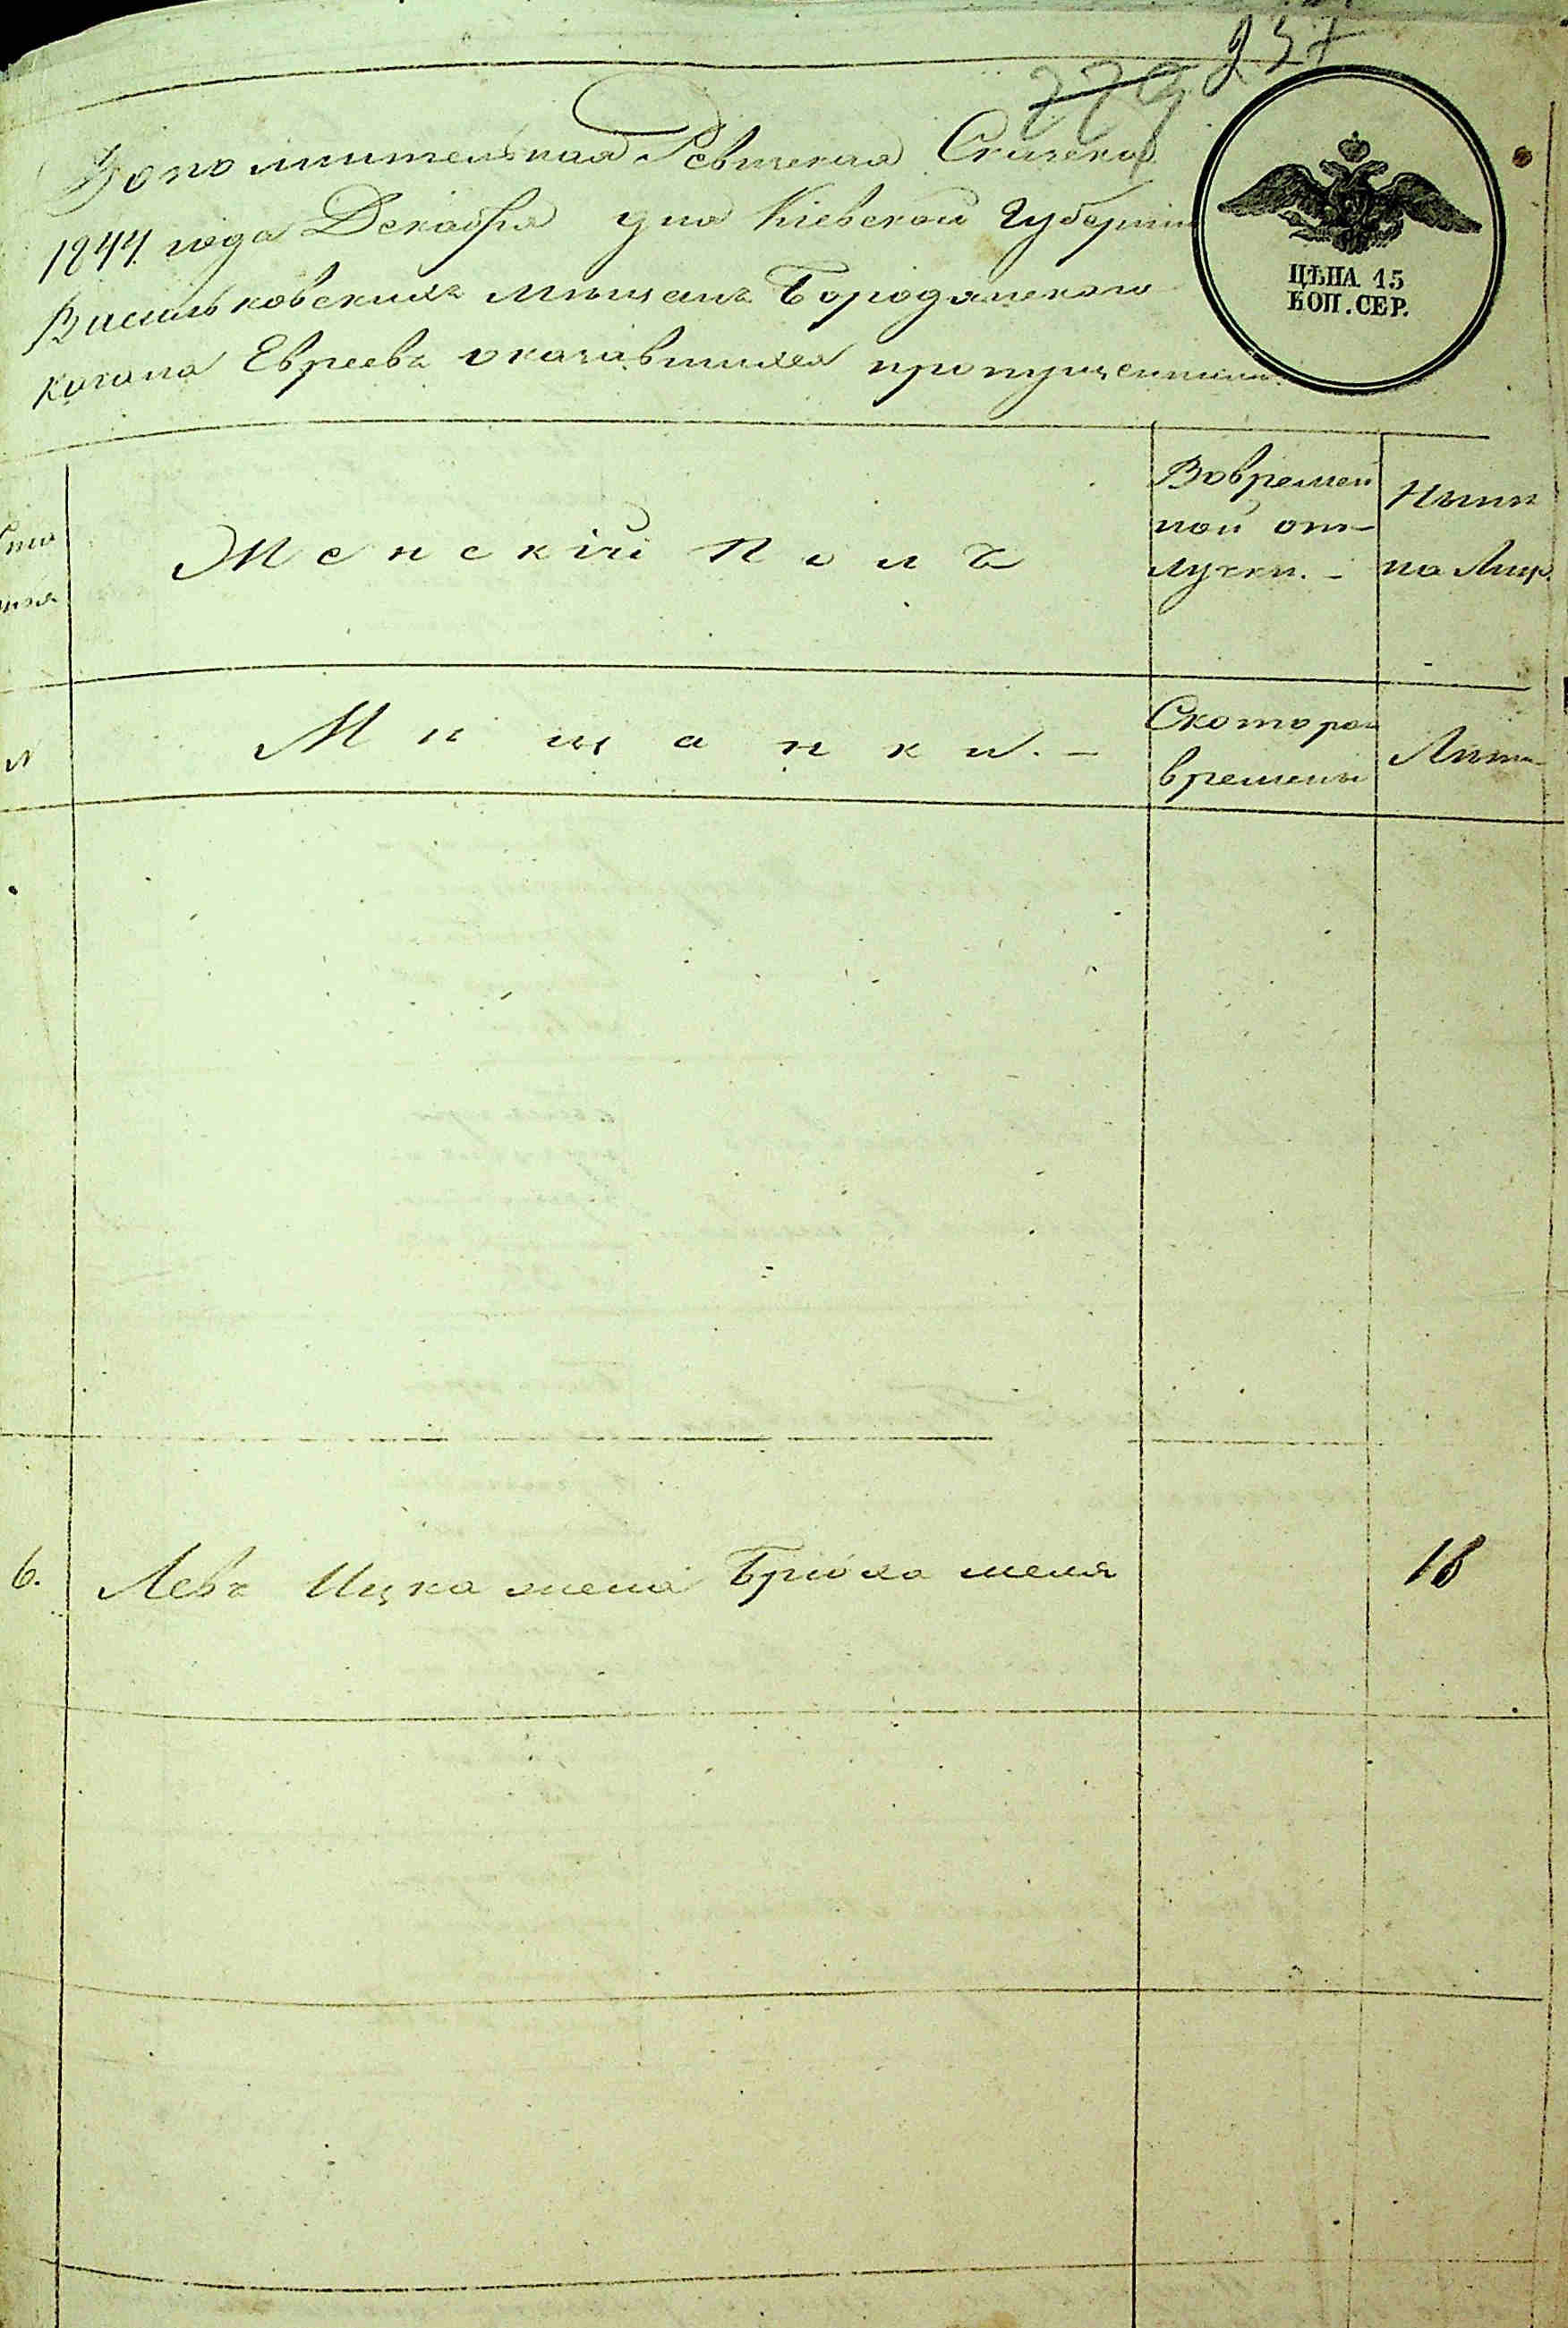 257
229
Дополнительная Ревизская Сказка
1844 года Декабря дня Кіевской Губерніи
Васильковскихъ мѣщанъ Бородянского
кагала Евреевъ оказавшихся пропущенными.
ЦѢНА 15
КОП. СЕР.
Женскій Полъ
Вовремен
ной от-
лучки. -
Нынѣ
на Лицо
Мѣщанки. -
Скотора
времени
Лѣта
6. Левъ Ицка жена Брюха меля 18